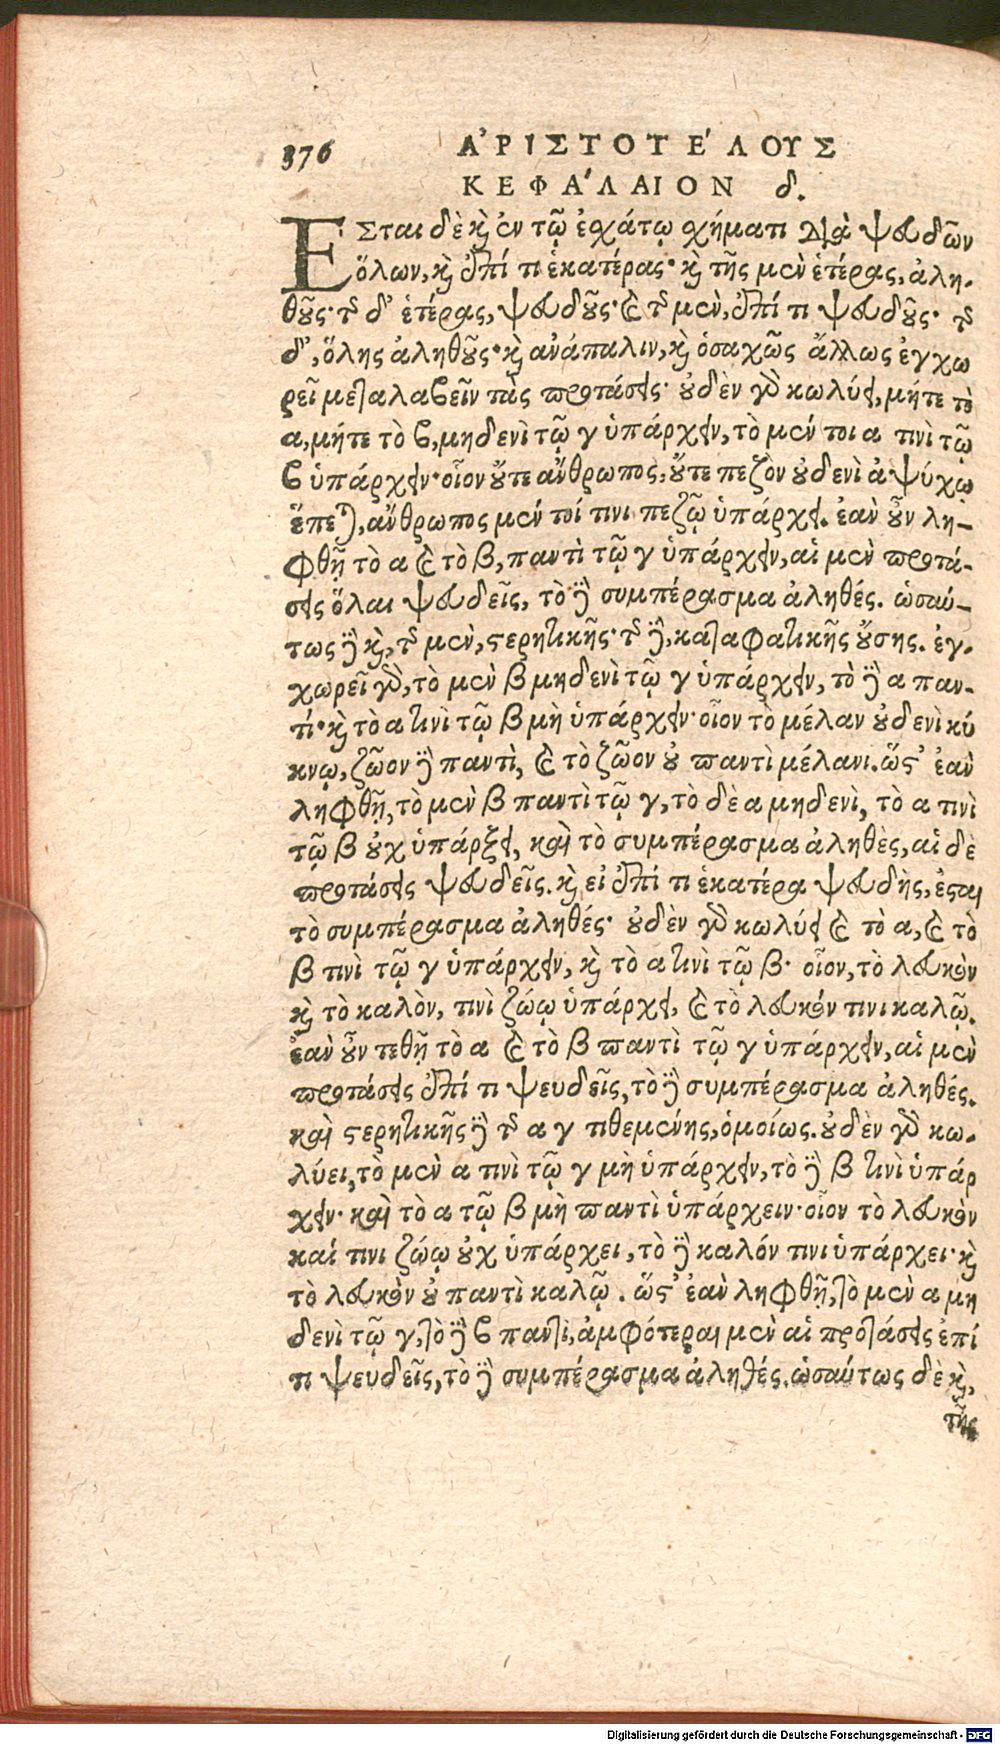 376 ἈΡΙΣΤΟΤΈΛΟΥΣ
ΚΕΦΆΛΑΙΟΝ δ.
ΕΣται δὲ καὶ ἐν τῷ ἐσχάτῳ σχήματι διὰ ψευδῶν
ὅλων, καὶ ἐπί τι ἑκατέρας· καὶ τῆς μὲν ἑτέρας, ἀλη-
θοῦς· τῆς δ’ ἑτέρας, ψευδοῦς· καὶ τῆς μὲν, ἐπί τι ψευδοῦς· τῆς
δ’, ὅλης ἀληθοῦς· καὶ ἀνάπαλιν, καὶ ὁσαχῶς ἄλλως ἐγχω
ρεῖ μεταλαβεῖν τὰς προτάσεις· οὐδὲν γὰρ κωλύει, μήτε τὸ
α, μήτε τὸ β, μηδενὶ τῷ γ ὑπάρχειν, τὸ μέν τοι α τινὶ τῷ
β ὑπάρχειν· οἷον οὔτε ἄνθρωπος, οὔτε πεζὸν οὐδενὶ ἀψύχῳ
ἕπεται, ἄνθρωπος μέν τοί τινι πεζῷ ὑπάρχει. ἐὰν οὖν λη-
φθῇ τὸ α καὶ τὸ β, παντὶ τῷ γ ὑπάρχειν, αἱ μὲν προτά-
σεις ὅλαι ψευδεῖς, τὸ δὲ συμπέρασμα ἀληθές. ὡσαύ-
τως δὲ καὶ, τῆς μὲν, στερητικῆς· τῆς δὲ, καταφατικῆς οὔσης. ἐγ-
χωρεῖ γὰρ, τὸ μὲν β μηδενὶ τῷ γ ὑπάρχειν, τὸ δὲ α παν-
τί· καὶ τὸ α τινὶ τῷ β μὴ ὑπάρχειν· οἷον τὸ μέλαν οὐδενὶ κύ
κνῳ, ζῶον δὲ παντὶ, καὶ τὸ ζῶον οὐ παντὶ μέλανι. ὥστ’ ἐὰν
ληφθῇ, τὸ μὲν β παντὶ τῷ γ, τὸ δὲ α μηδενὶ, τὸ α τινὶ
τῷ β οὐχ ὑπάρξει, καὶ τὸ συμπέρασμα ἀληθὲς, αἱ δὲ
προτάσεις ψευδεῖς. καὶ εἰ ἐπί τι ἑκατέρα ψευδὴς, ἔσται
τὸ συμπέρασμα ἀληθές· οὐδὲν γὰρ κωλύει καὶ τὸ α, καὶ τὸ
β τινὶ τῷ γ ὑπάρχειν, καὶ τὸ α τινὶ τῷ β· οἷον, τὸ λευκὸν
καὶ τὸ καλὸν, τινὶ ζώῳ ὑπάρχει, καὶ τὸ λευκόν τινι καλῷ.
ἐὰν οὖν τεθῇ τὸ α καὶ τὸ β παντὶ τῷ γ ὑπάρχειν, αἱ μὲν
προτάσεις ἐπί τι ψευδεῖς, τὸ δὲ συμπέρασμα ἀληθές.
καὶ στερητικῆς δὲ τῆς α γ τιθεμένης, ὁμοίως. οὐδὲν γὰρ κω-
λύει, τὸ μὲν α τινὶ τῷ γ μὴ ὑπάρχειν, τὸ δὲ β τινὶ ὑπάρ
χειν· καὶ τὸ α τῷ β μὴ παντὶ ὑπάρχειν· οἷον τὸ λευκὸν
καί τινι ζώῳ οὐχ ὑπάρχει, τὸ δὲ καλόν τινι ὑπάρχει· καὶ
τὸ λευκὸν οὐ παντὶ καλῷ. ὥστ’ ἐὰν ληφθῇ, τὸ μὲν α μη
δενὶ τῷ γ, τὸ δὲ β παντὶ, ἀμφότεραι μὲν αἱ προτάσεις ἐπί
τι ψευδεῖς, τὸ δὲ συμπέρασμα ἀληθές. ὡσαύτως δὲ καὶ,
τῆς
Digitalisierung gefördert durch die Deutsche Forschungsgemeinschaft - DFG